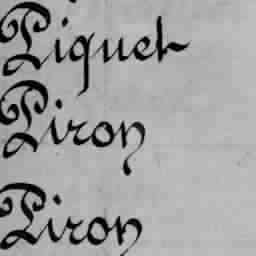 Piquet
Piron
Piron